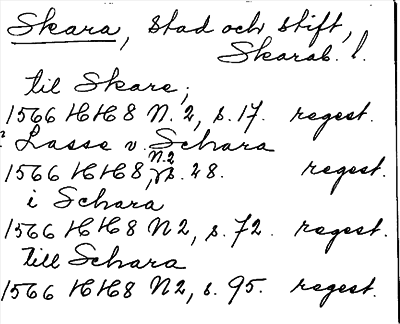 Skara, stad och stift,
Skarab. l.
til Skare;
1566 HH8 N. 2, s. 17. regest.
? Lasse v. Schara
1566 HH8, N.2 s. 28. regest.
i Schara
1566 HH8 N2, s. 72. regest.
till Schara
1566 HH8 N2, s. 95. regest.